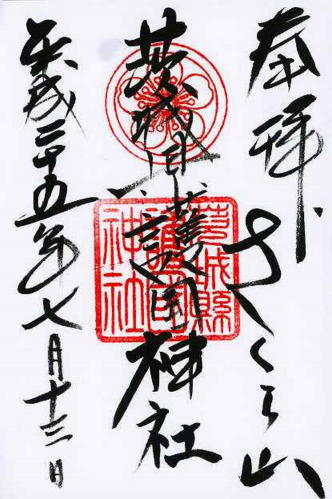 奉拝 さくら山
茨城県護国神社
平成二十五年七月十三日
茨城縣
護國
神社